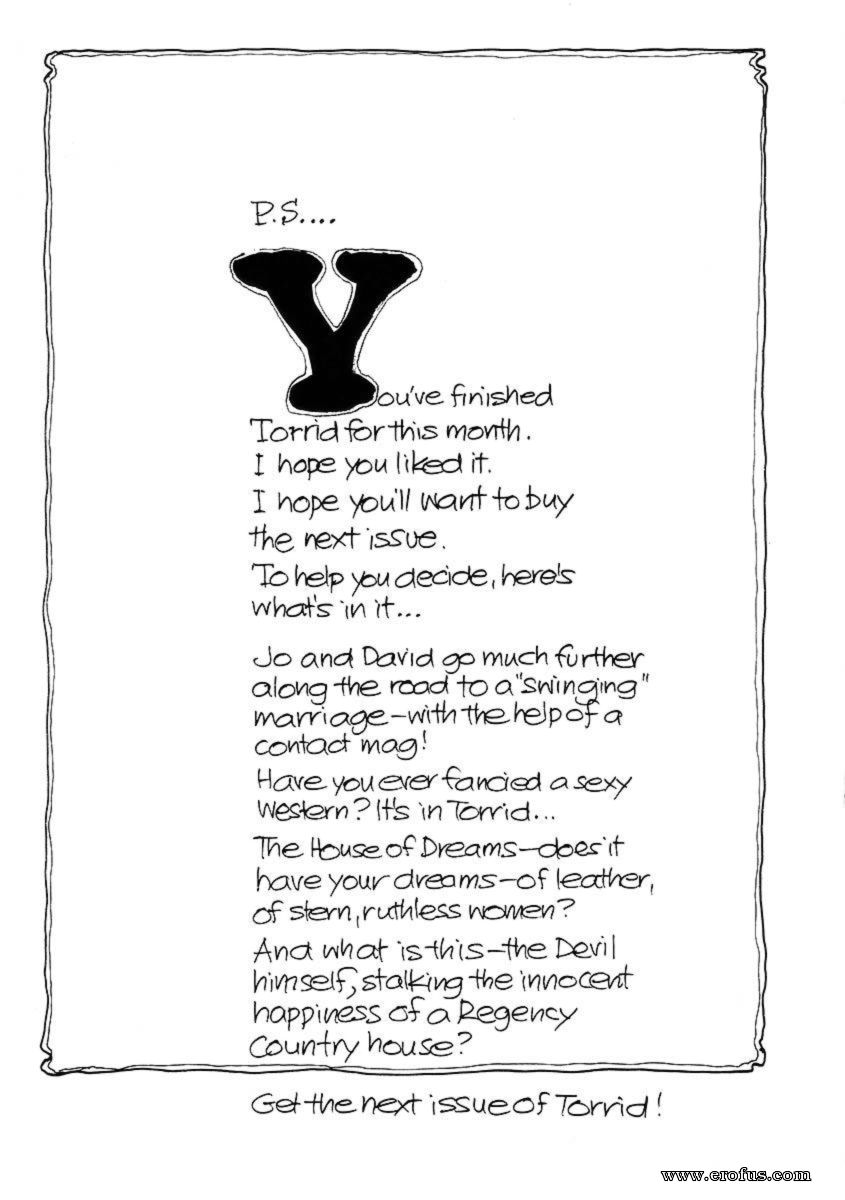 P.S....
You've finished
Torrid for this month.
I hope you liked it.
I hope you'll want to buy
the next issue.
To help you decide, here's
what's in it...
Jo and David go much further
along the road to a "swinging"
marriage-with the help of a
contact mag!
Have you ever fancied a sexy
Western? It's in Torrid...
The House of Dreams-does it
have your dreams-of leather,
of stern, ruthless women?
And what is this-the Devil
himself, stalking the innocent
happiness of a Regency
Country house?
Get the next issue of Torrid!
www.erofus.com